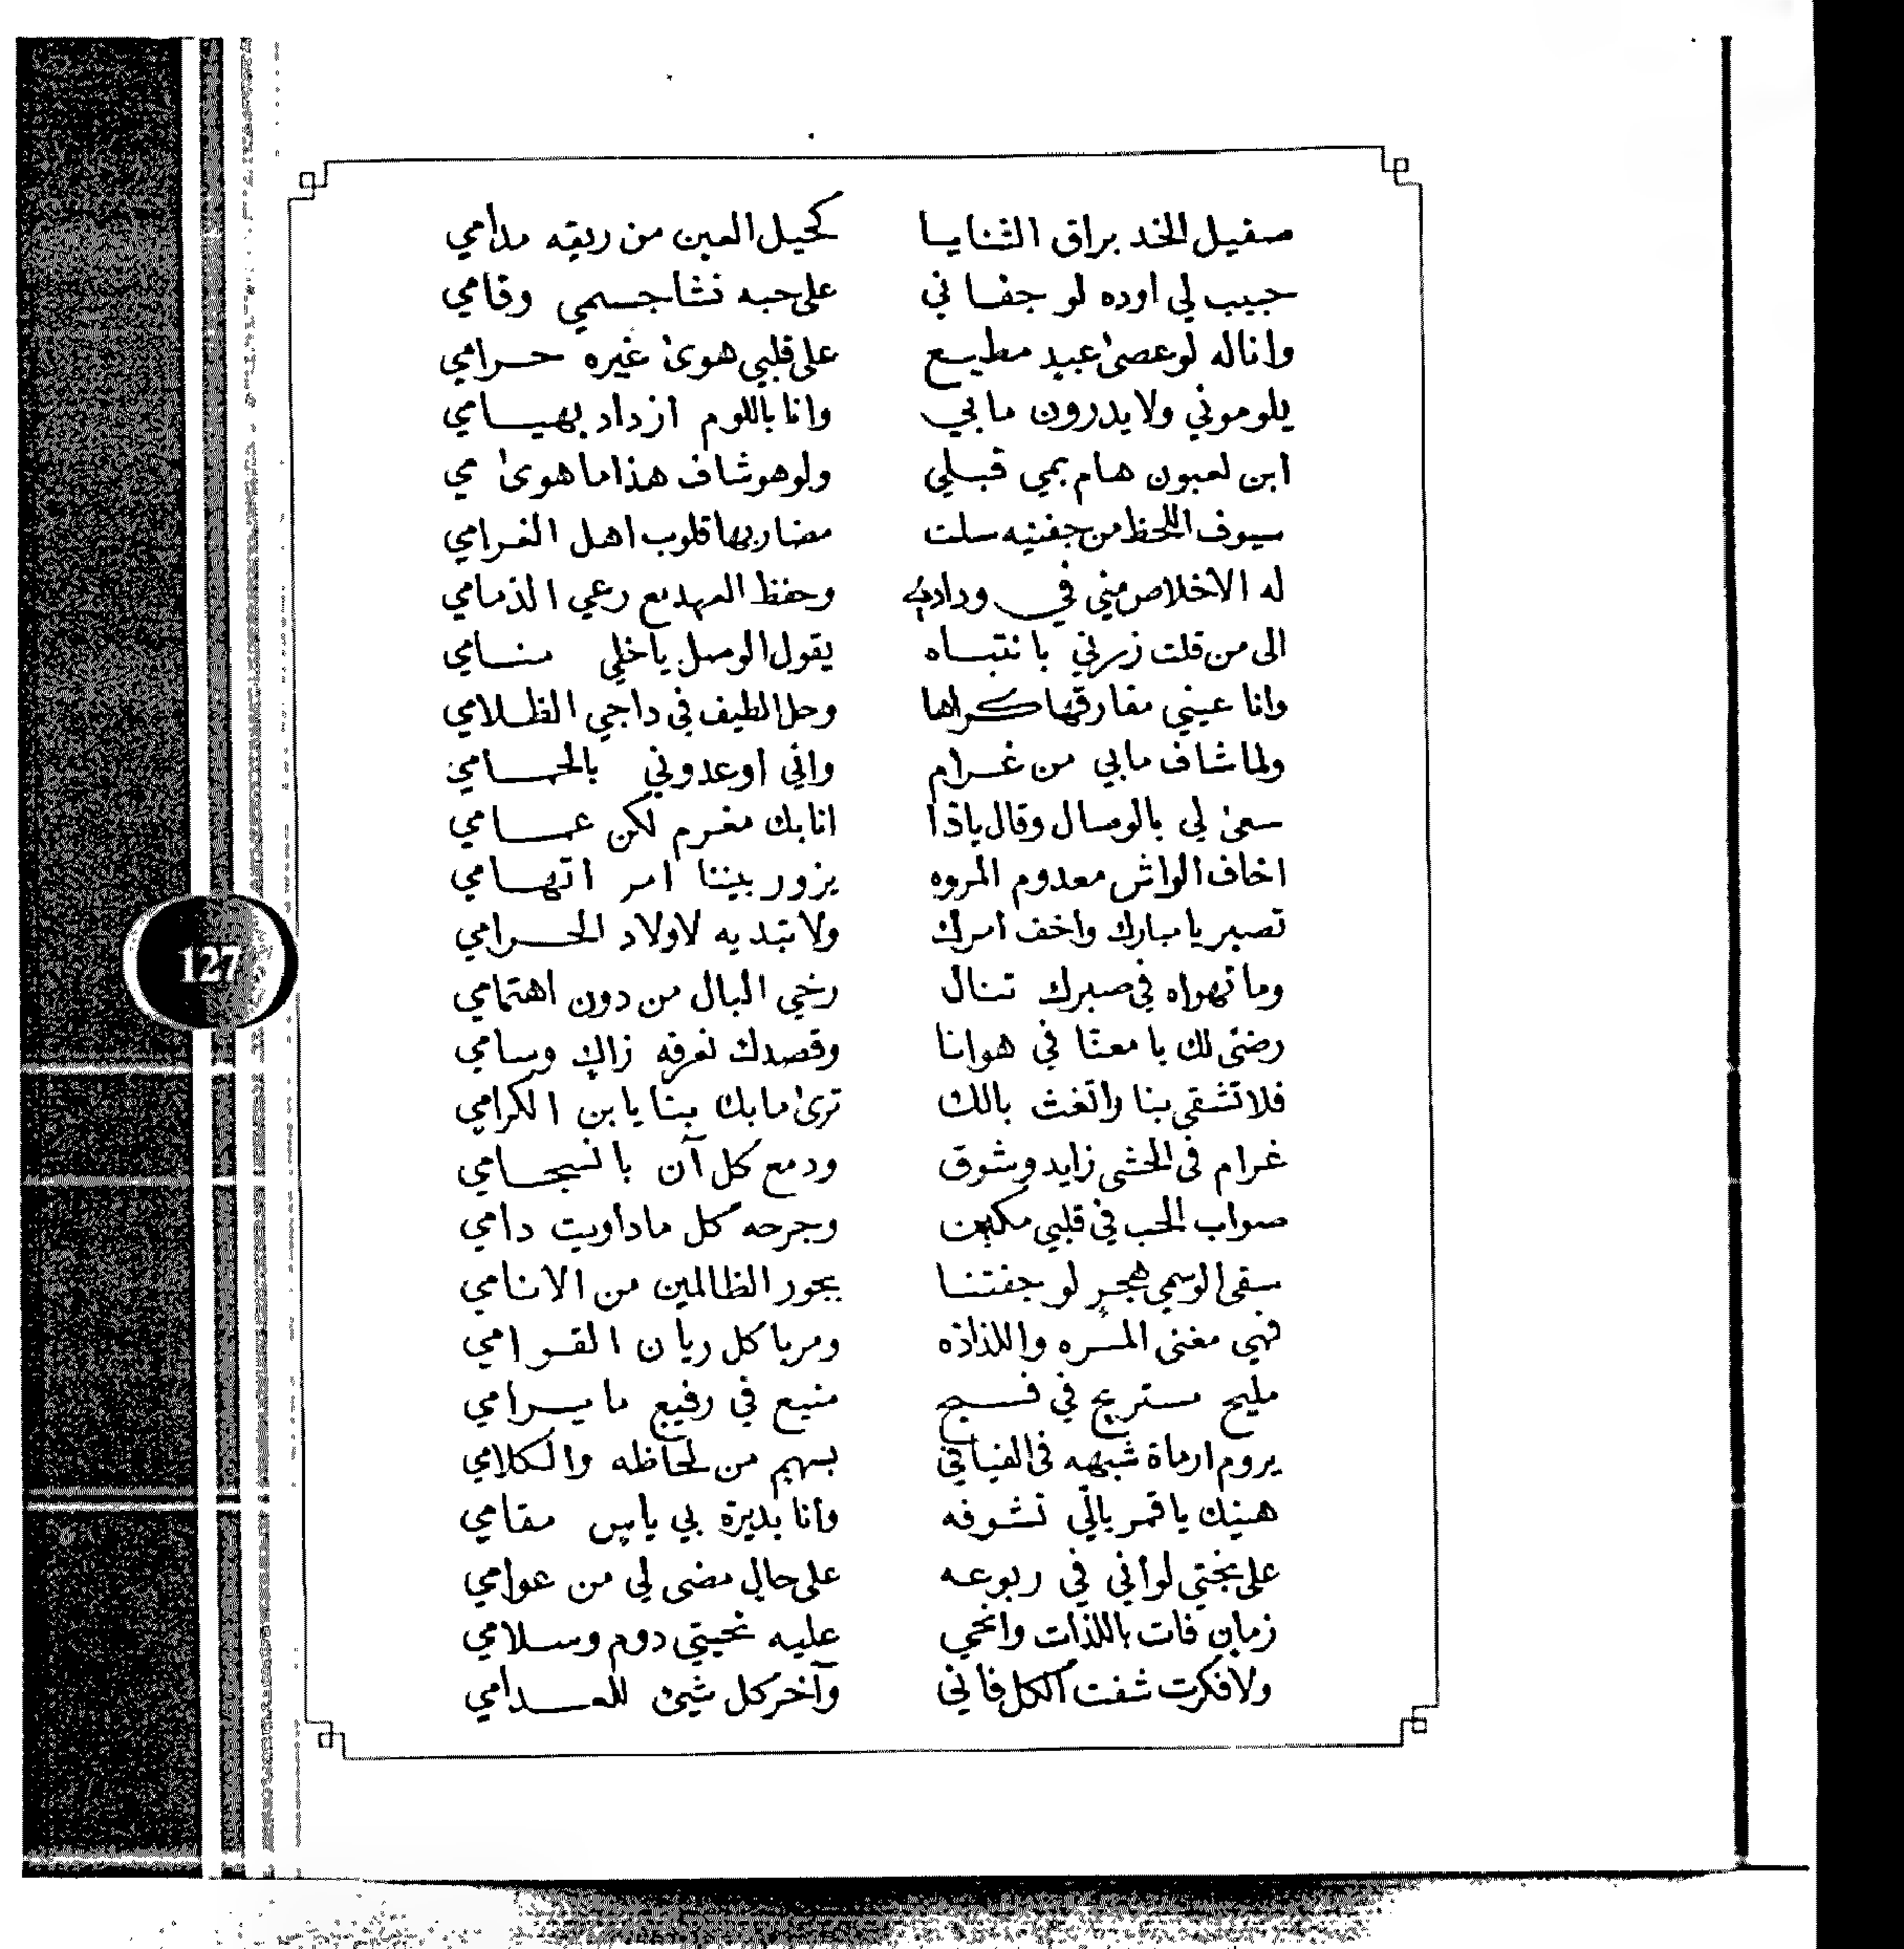 صقيل الخد براق الثنايا كحيل العين من ريقه مدامي
حبيب لي اوده لو جفاني على حبه نشا جسمي وقامي
وانا له لو عصىٰ عبدٍ مطيع على قلبي هوىٰ غيره حرامي
يلوموني ولا يدرون ما بي وانا باللوم ازداد بهيامي
ابن لعبون هام بمي قبلي ولو هو شاف هذا ما هوىٰ مي
سيوف اللحظ من جفنيه سلت مضاربها قلوب اهل الغرامي
له الاخلاص مني في وداده وحفظ العهد مع رعي الذمامي
الى من قلت زرني بانتباه يقول الوصل يا خلي منامي
وانا عيني مفارقها كراها وحل الطيف في داجي الظلامي
ولما شاف ما بي من غرام واني اوعدوني بالحمامي
سمىٰ لي بالوصال وقال ياذا انا بك مغرم لكن عمامي
اخاف الواش معدوم المروه يزور بيننا امر اتهامي
تصبر يا مبارك واخف امرك ولا تبديه لاولاد الحرامي
وما تهواه في صبرك تنال رخي البال من دون اهتمامي
رضىٰ لك يا معنّا في هوانا وقصدك نعرفه زاكٍ وسامي
فلا تشقى بنا واتغث بالك ترىٰ ما بك بنا يا بن الكرامي
غرام في الحشى زايد وشوق ودمع كل آن بانسجامي
صواب الحب في قلبي مكين وجرحه كل ما داويت دامي
سقى الوسمي هجرٍ لو جفتنا بجور الظالمين من الانامي
فهي مغنى المسره واللذاذه ومربا كل ريان القوامي
مليح مستريح في فسيح منيع في رفيع ما يرامي
يروم ارماة شبهه في الفيافي بسهم من لحاظه والكلامي
هنيك يا قمر بالّي تشوفه وانا بديرة بي ياسٍ مقامي
على بختي لو اني في ربوعه على حالٍ مضى لي من عوامي
زمانٍ فات باللذات وانحي عليه تحيتي دوم وسلامي
ولا فكرت شفت الكل فاني وآخر كل شيئ للعدامي
127